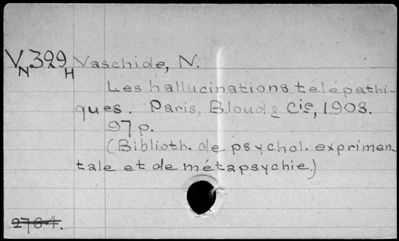 VN 399 H Vaschide, N.
Les hallucinations télépathi-
ques. Paris, Bloud & Cie, 1908.
97 p.
(Biblioth. de psychol. exprimen
tale et de métapsychie)
2784.